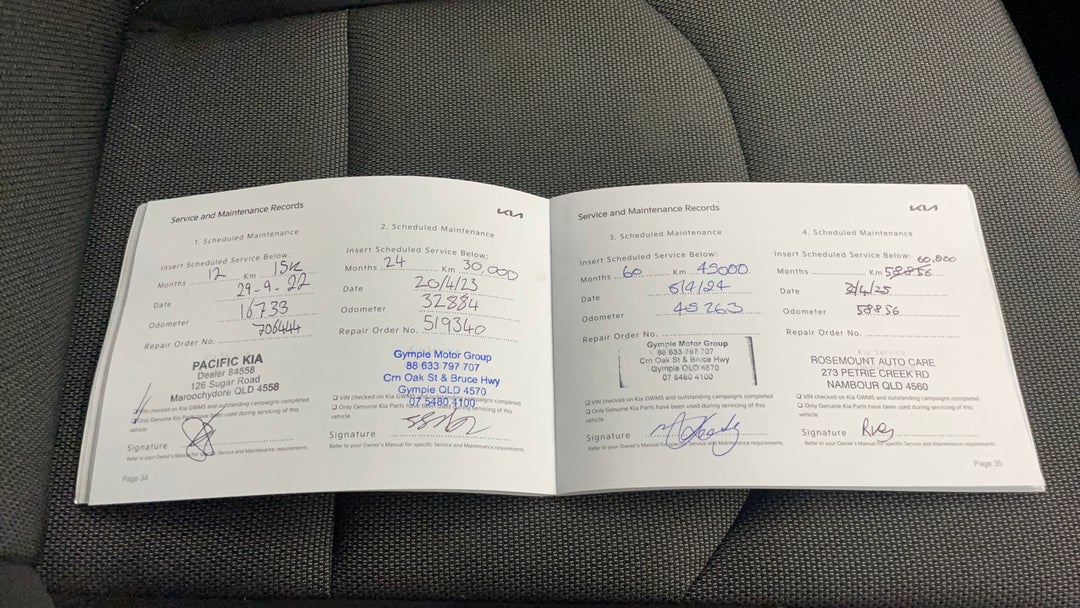 Service and Maintenance Records
KIA
1. Scheduled Maintenance
Insert Scheduled Service Below:
Months 12 Km 15K
Date 29-9-22
Odometer 16733
Repair Order No. 706444
PACIFIC KIA
Dealer 84558
126 Sugar Road
Maroochydore QLD 4558
❑ VIN checked on Kia GWMS and outstanding campaigns completed
❑ Only Genuine Kia Parts have been used during servicing of this
vehicle
Signature
Refer to your Owner's Manual for specific Service and Maintenance requirements
Page 34
2. Scheduled Maintenance
Insert Scheduled Service Below:
Months 24 Km 30,000
Date 20/4/23
Odometer 32884
Repair Order No. 519340
Gympie Motor Group
88 633 797 707
Crn Oak St & Bruce Hwy
Gympie QLD 4570
07 5480 4100
❑ VIN checked on Kia GWMS and outstanding campaigns completed
❑ Only Genuine Kia Parts have been used during servicing of this
vehicle
Signature
Refer to your Owner's Manual for specific Service and Maintenance requirements
Service and Maintenance Records
KIA
3. Scheduled Maintenance
Insert Scheduled Service Below:
Months 60 Km 45000
Date
Odometer 45263
Repair Order No.
Gympie Motor Group
88 633 797 707
Crn Oak St & Bruce Hwy
Gympie QLD 4570
07 5480 4100
❑ VIN checked on Kia GWMS and outstanding campaigns completed
❑ Only Genuine Kia Parts have been used during servicing of this
vehicle
Signature
Refer to your Owner's Manual for specific Service and Maintenance requirements
4. Scheduled Maintenance
Insert Scheduled Service Below: 60,000
Months Km 58856
Date
Odometer 58856
Repair Order No.
Kia Service
ROSEMOUNT AUTO CARE
273 PETRIE CREEK RD
NAMBOUR QLD 4560
❑ VIN checked on Kia GWMS and outstanding campaigns completed
❑ Only Genuine Kia Parts have been used during servicing of this
vehicle
Signature
Refer to your Owner's Manual for specific Service and Maintenance requirements
Page 35